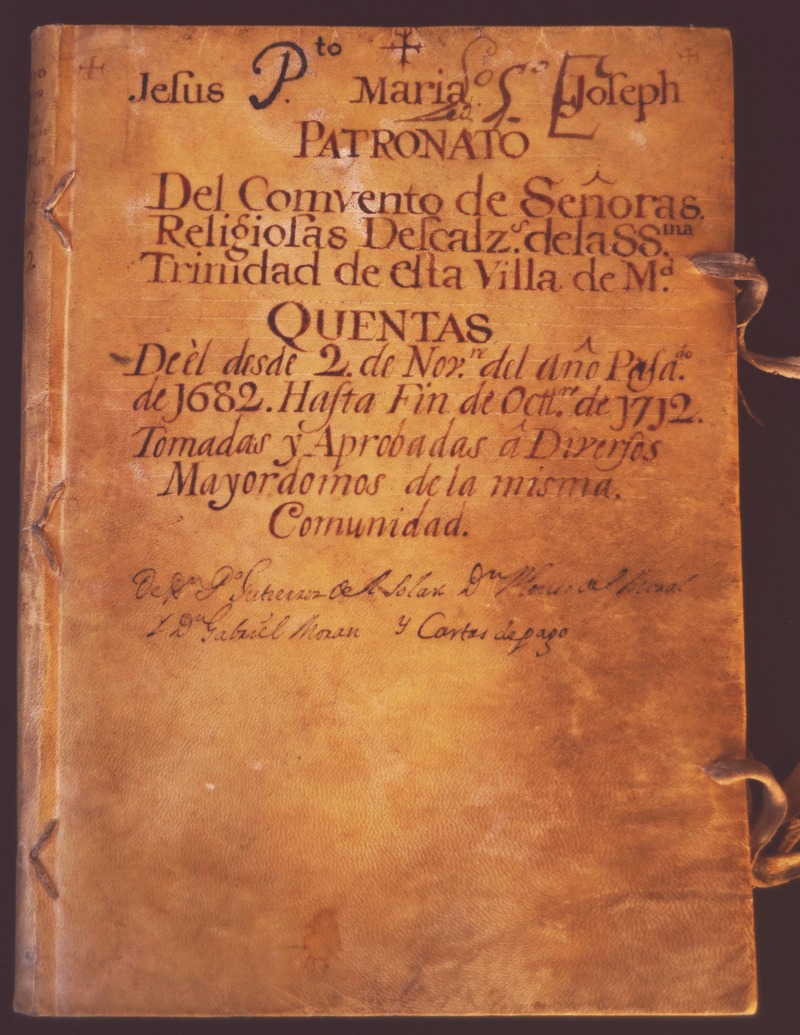 Jeſus P.to Maria Joſeph
PATRONATO
Del Comvento de Señoras.
Religioſas Deſcalz.s delaSS.ma
Trinidad de eſta Villa de M.d
QUENTAS
De èl desde 2. de Nov.re del año Paſad.do
de 1682. Haſta Fin de Octt.re de 1712.
Tomadas y Aprobadas â Diverſos
Mayordomos de la misma.
Comunidad.
De Dn P.o Gutierrez de Solar Dn del Moral
Y Dn Gabriel Moran y Cartas de pago